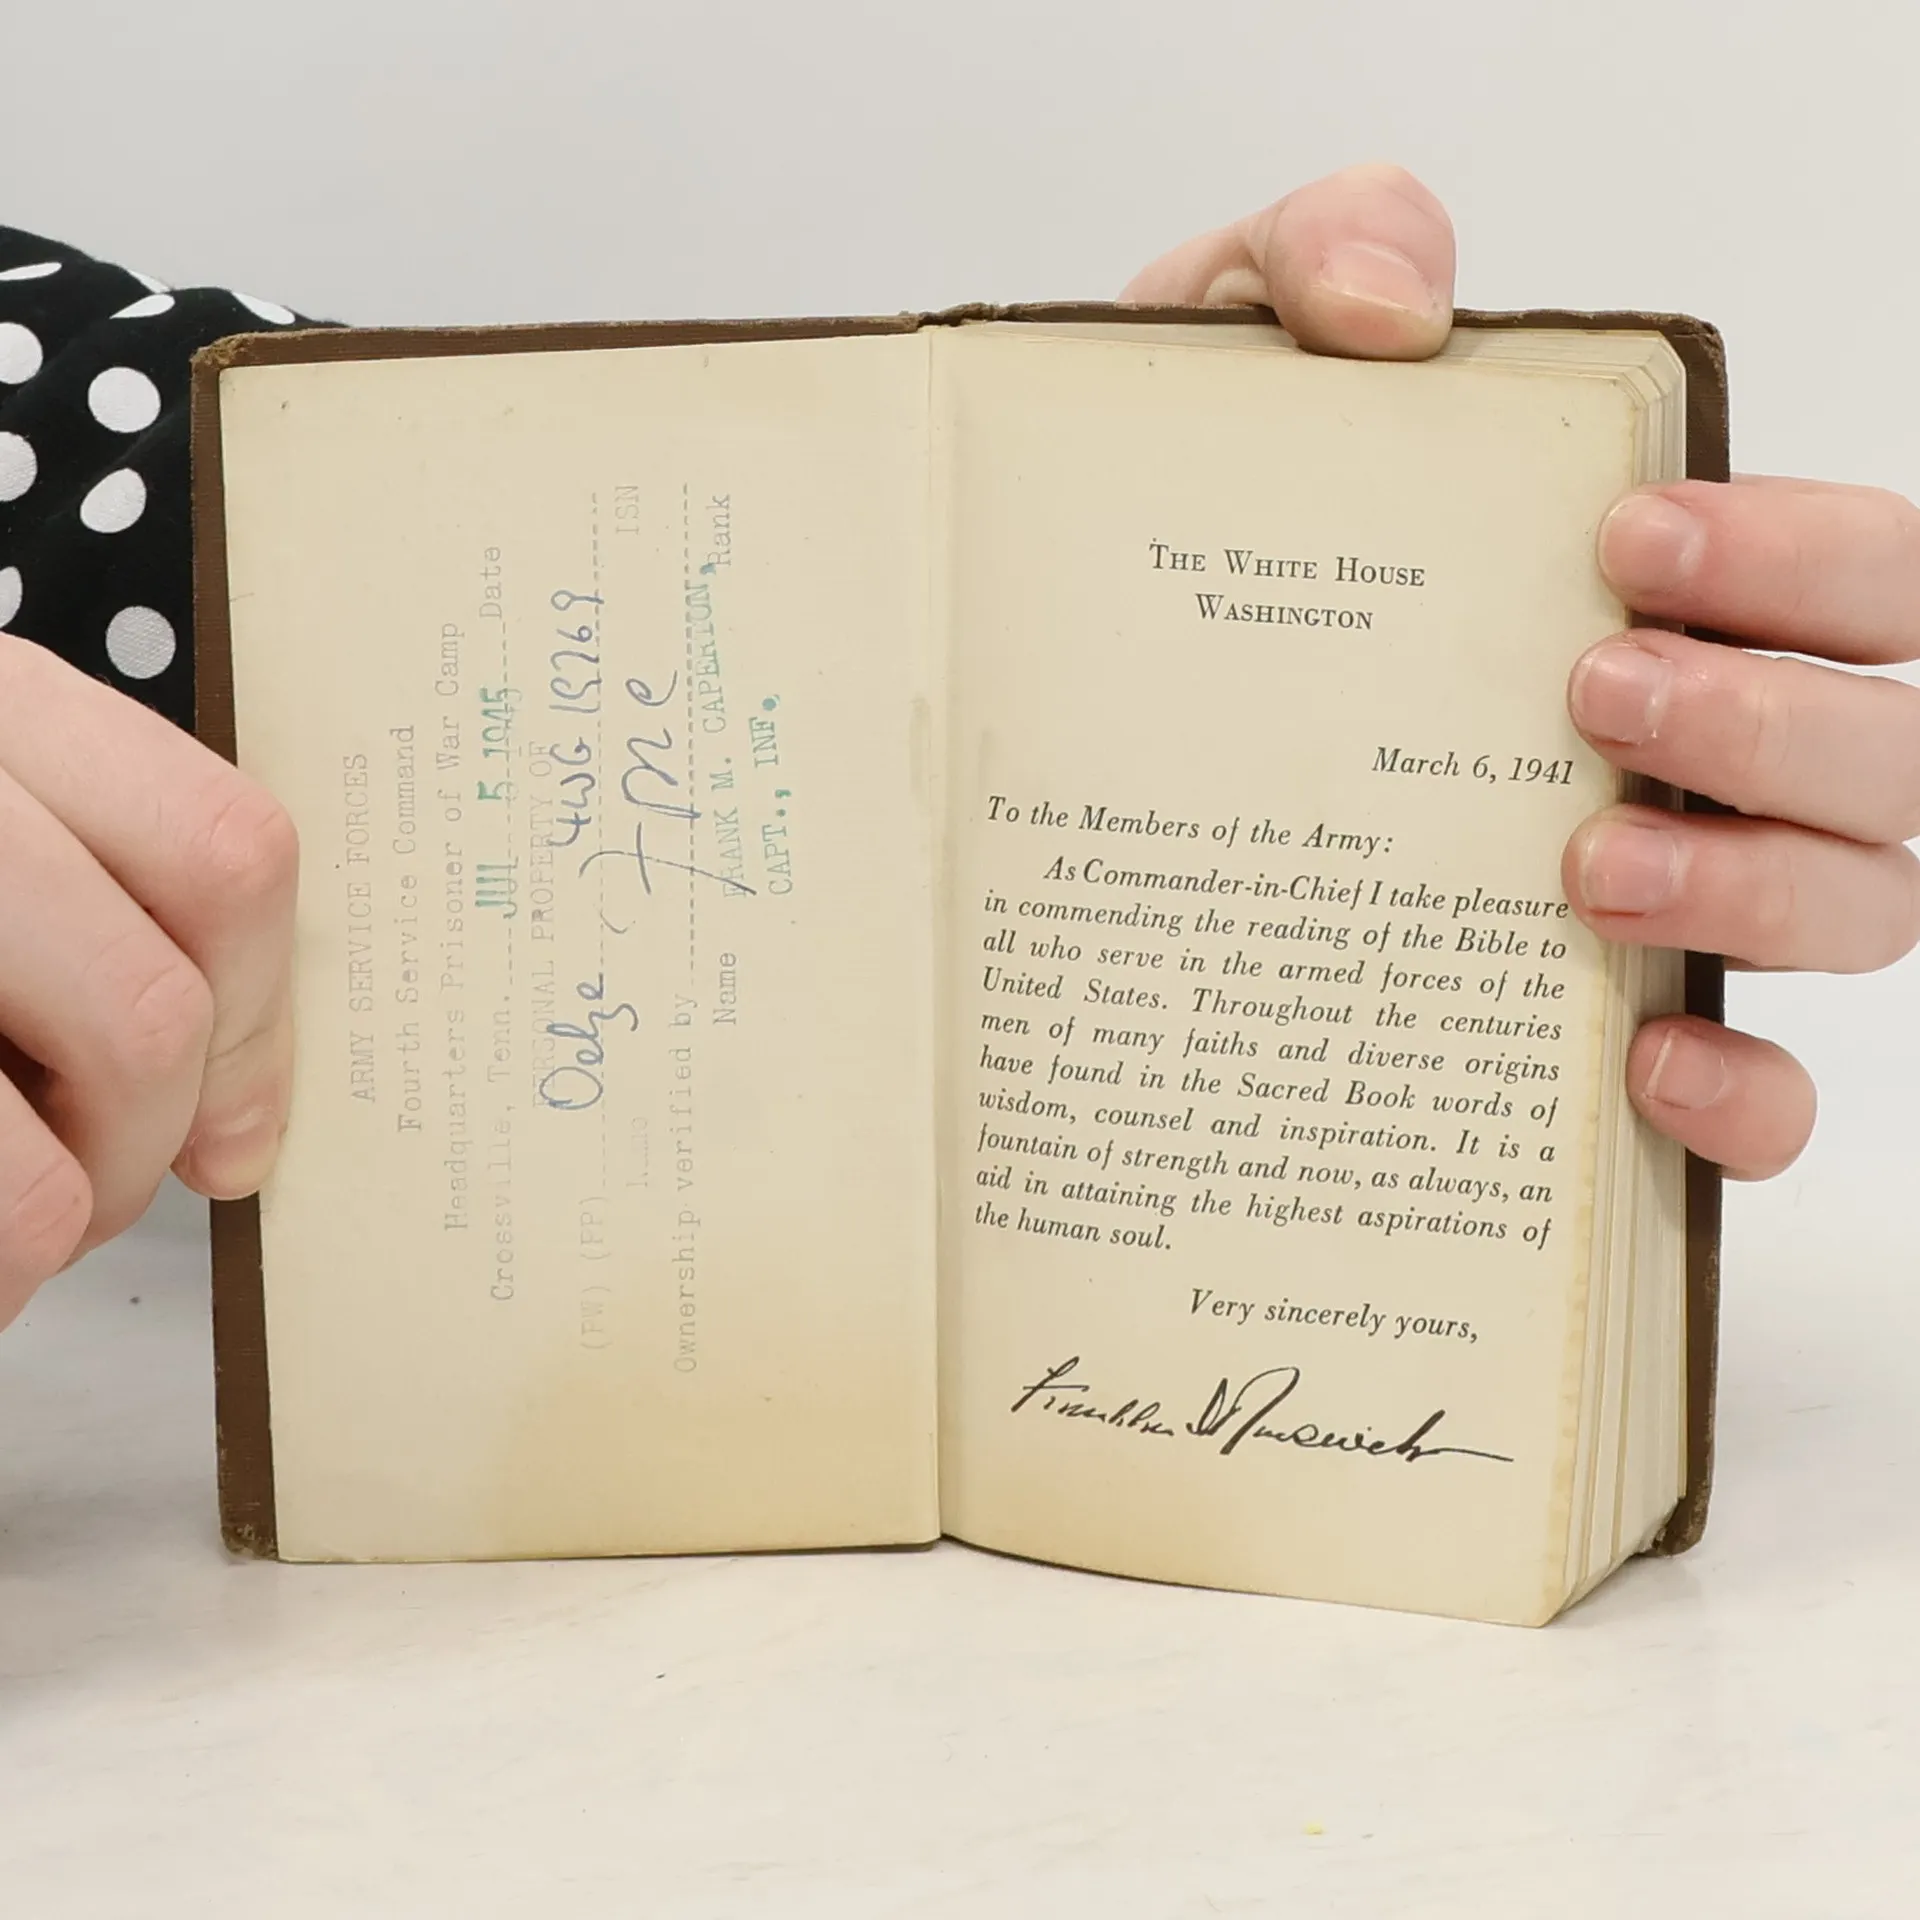 ARMY SERVICE FORCES
Fourth Service Command
Headquarters Prisoner of War Camp
Crossville, Tenn. JUL 5 1945 Date
PERSONAL PROPERTY OF
Oelze 4WG 19269
(PW) (PP)
Name ISN
Ownership verified by
Name FRANK M. CAPERTON, Rank
CAPT., INF.
THE WHITE HOUSE
WASHINGTON
March 6, 1941
To the Members of the Army:
As Commander-in-Chief I take pleasure
in commending the reading of the Bible to
all who serve in the armed forces of the
United States. Throughout the centuries
men of many faiths and diverse origins
have found in the Sacred Book words of
wisdom, counsel and inspiration. It is a
fountain of strength and now, as always, an
aid in attaining the highest aspirations of
the human soul.
Very sincerely yours,
Franklin D Roosevelt